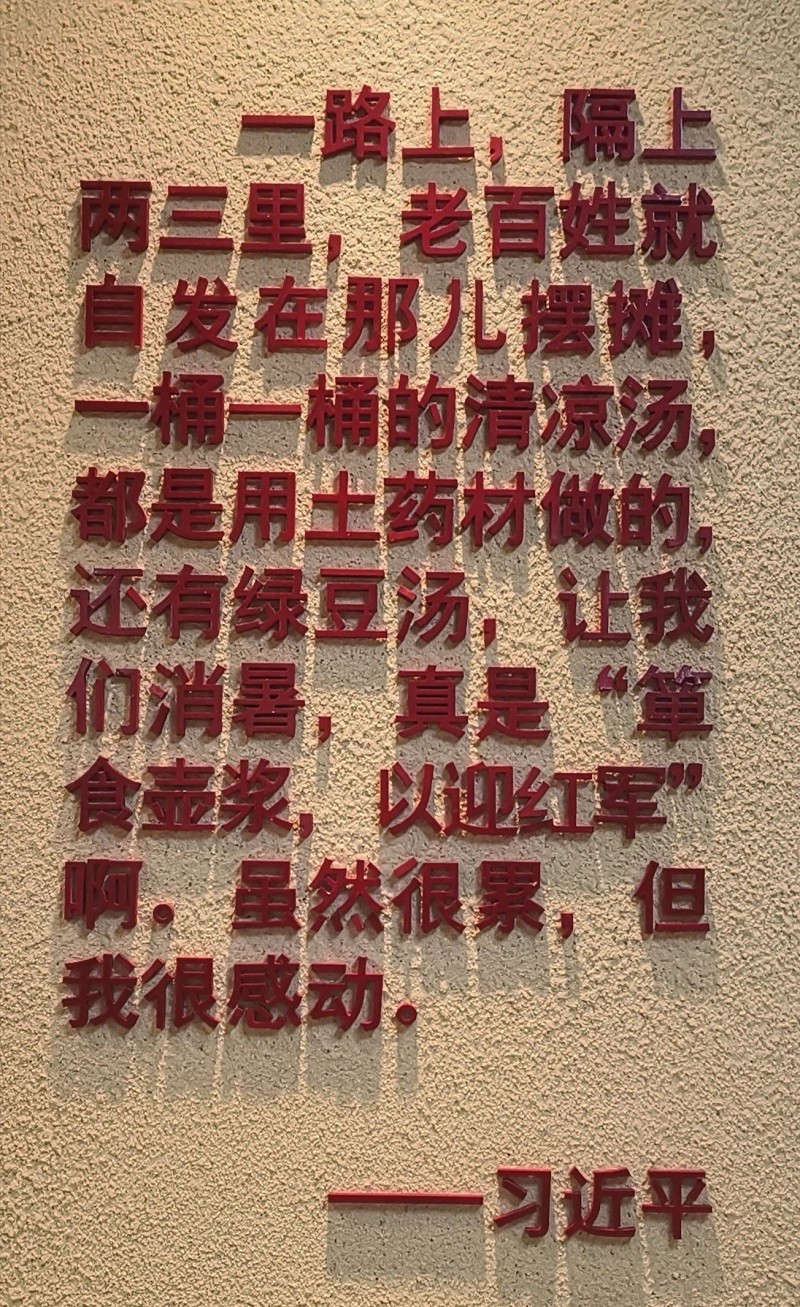 一路上，隔上
两三里，老百姓就
自发在那儿摆摊，
一桶一桶的清凉汤，
都是用土药材做的，
还有绿豆汤，让我
们消暑，真是“箪
食壶浆，以迎红军”
啊。虽然很累，但
我很感动。
——习近平